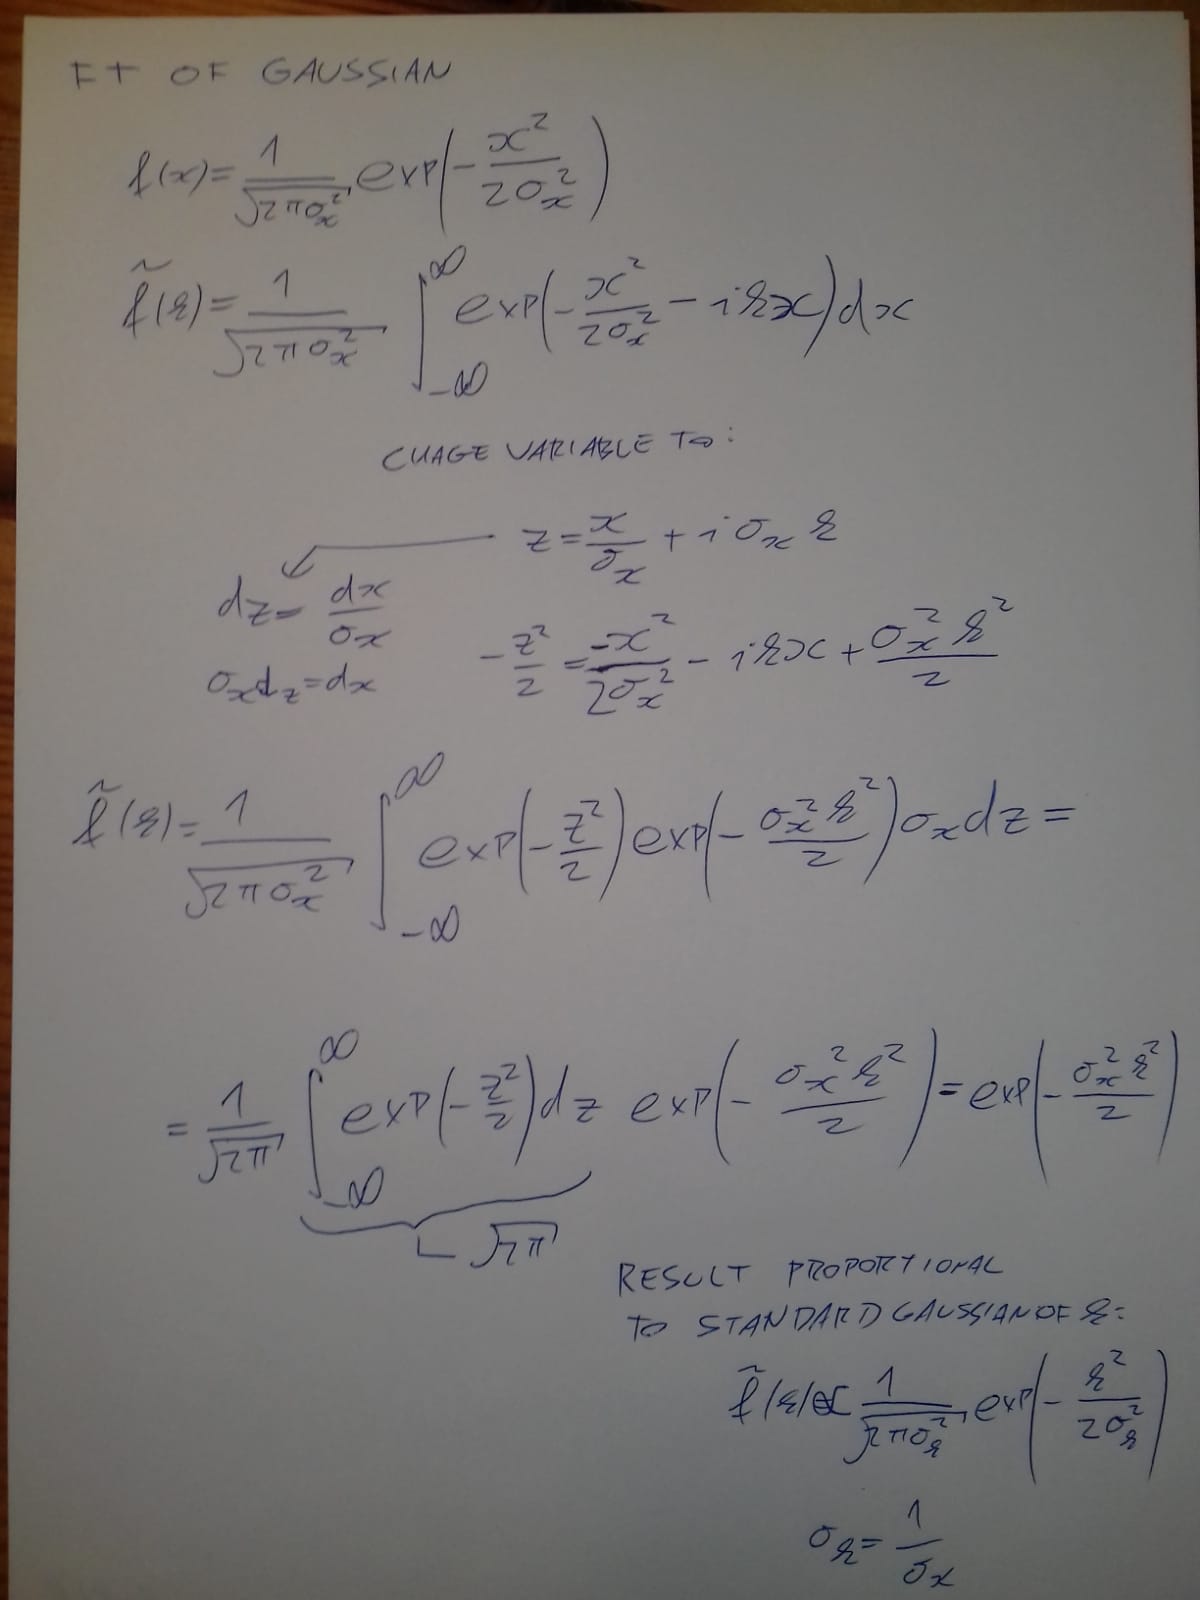 FT OF GAUSSIAN
f(x) = 1/√(2πσₓ²) exp(-x²/(2σₓ²))
f̃(k) = 1/√(2πσₓ²) ∫_{-∞}^{∞} exp(-x²/(2σₓ²) - ikx) dx
CHAGE VARIABLE TO:
z = x/σₓ + iσₓk
dz = dx/σₓ
-z²/2 = -x²/(2σₓ²) - ikx + σₓ²k²/2
σₓdz = dx
f̃(k) = 1/√(2πσₓ²) ∫_{-∞}^{∞} exp(-z²/2) exp(-σₓ²k²/2) σₓdz =
= 1/√(2π) ∫_{-∞}^{∞} exp(-z²/2) dz exp(-σₓ²k²/2) = exp(-σₓ²k²/2)
√(2π)
RESULT PROPORTIONAL
TO STANDARD GAUSSIAN OF k:
f̃(k) ∝ 1/√(2πσₖ²) exp(-k²/(2σₖ²))
σₖ = 1/σₓ